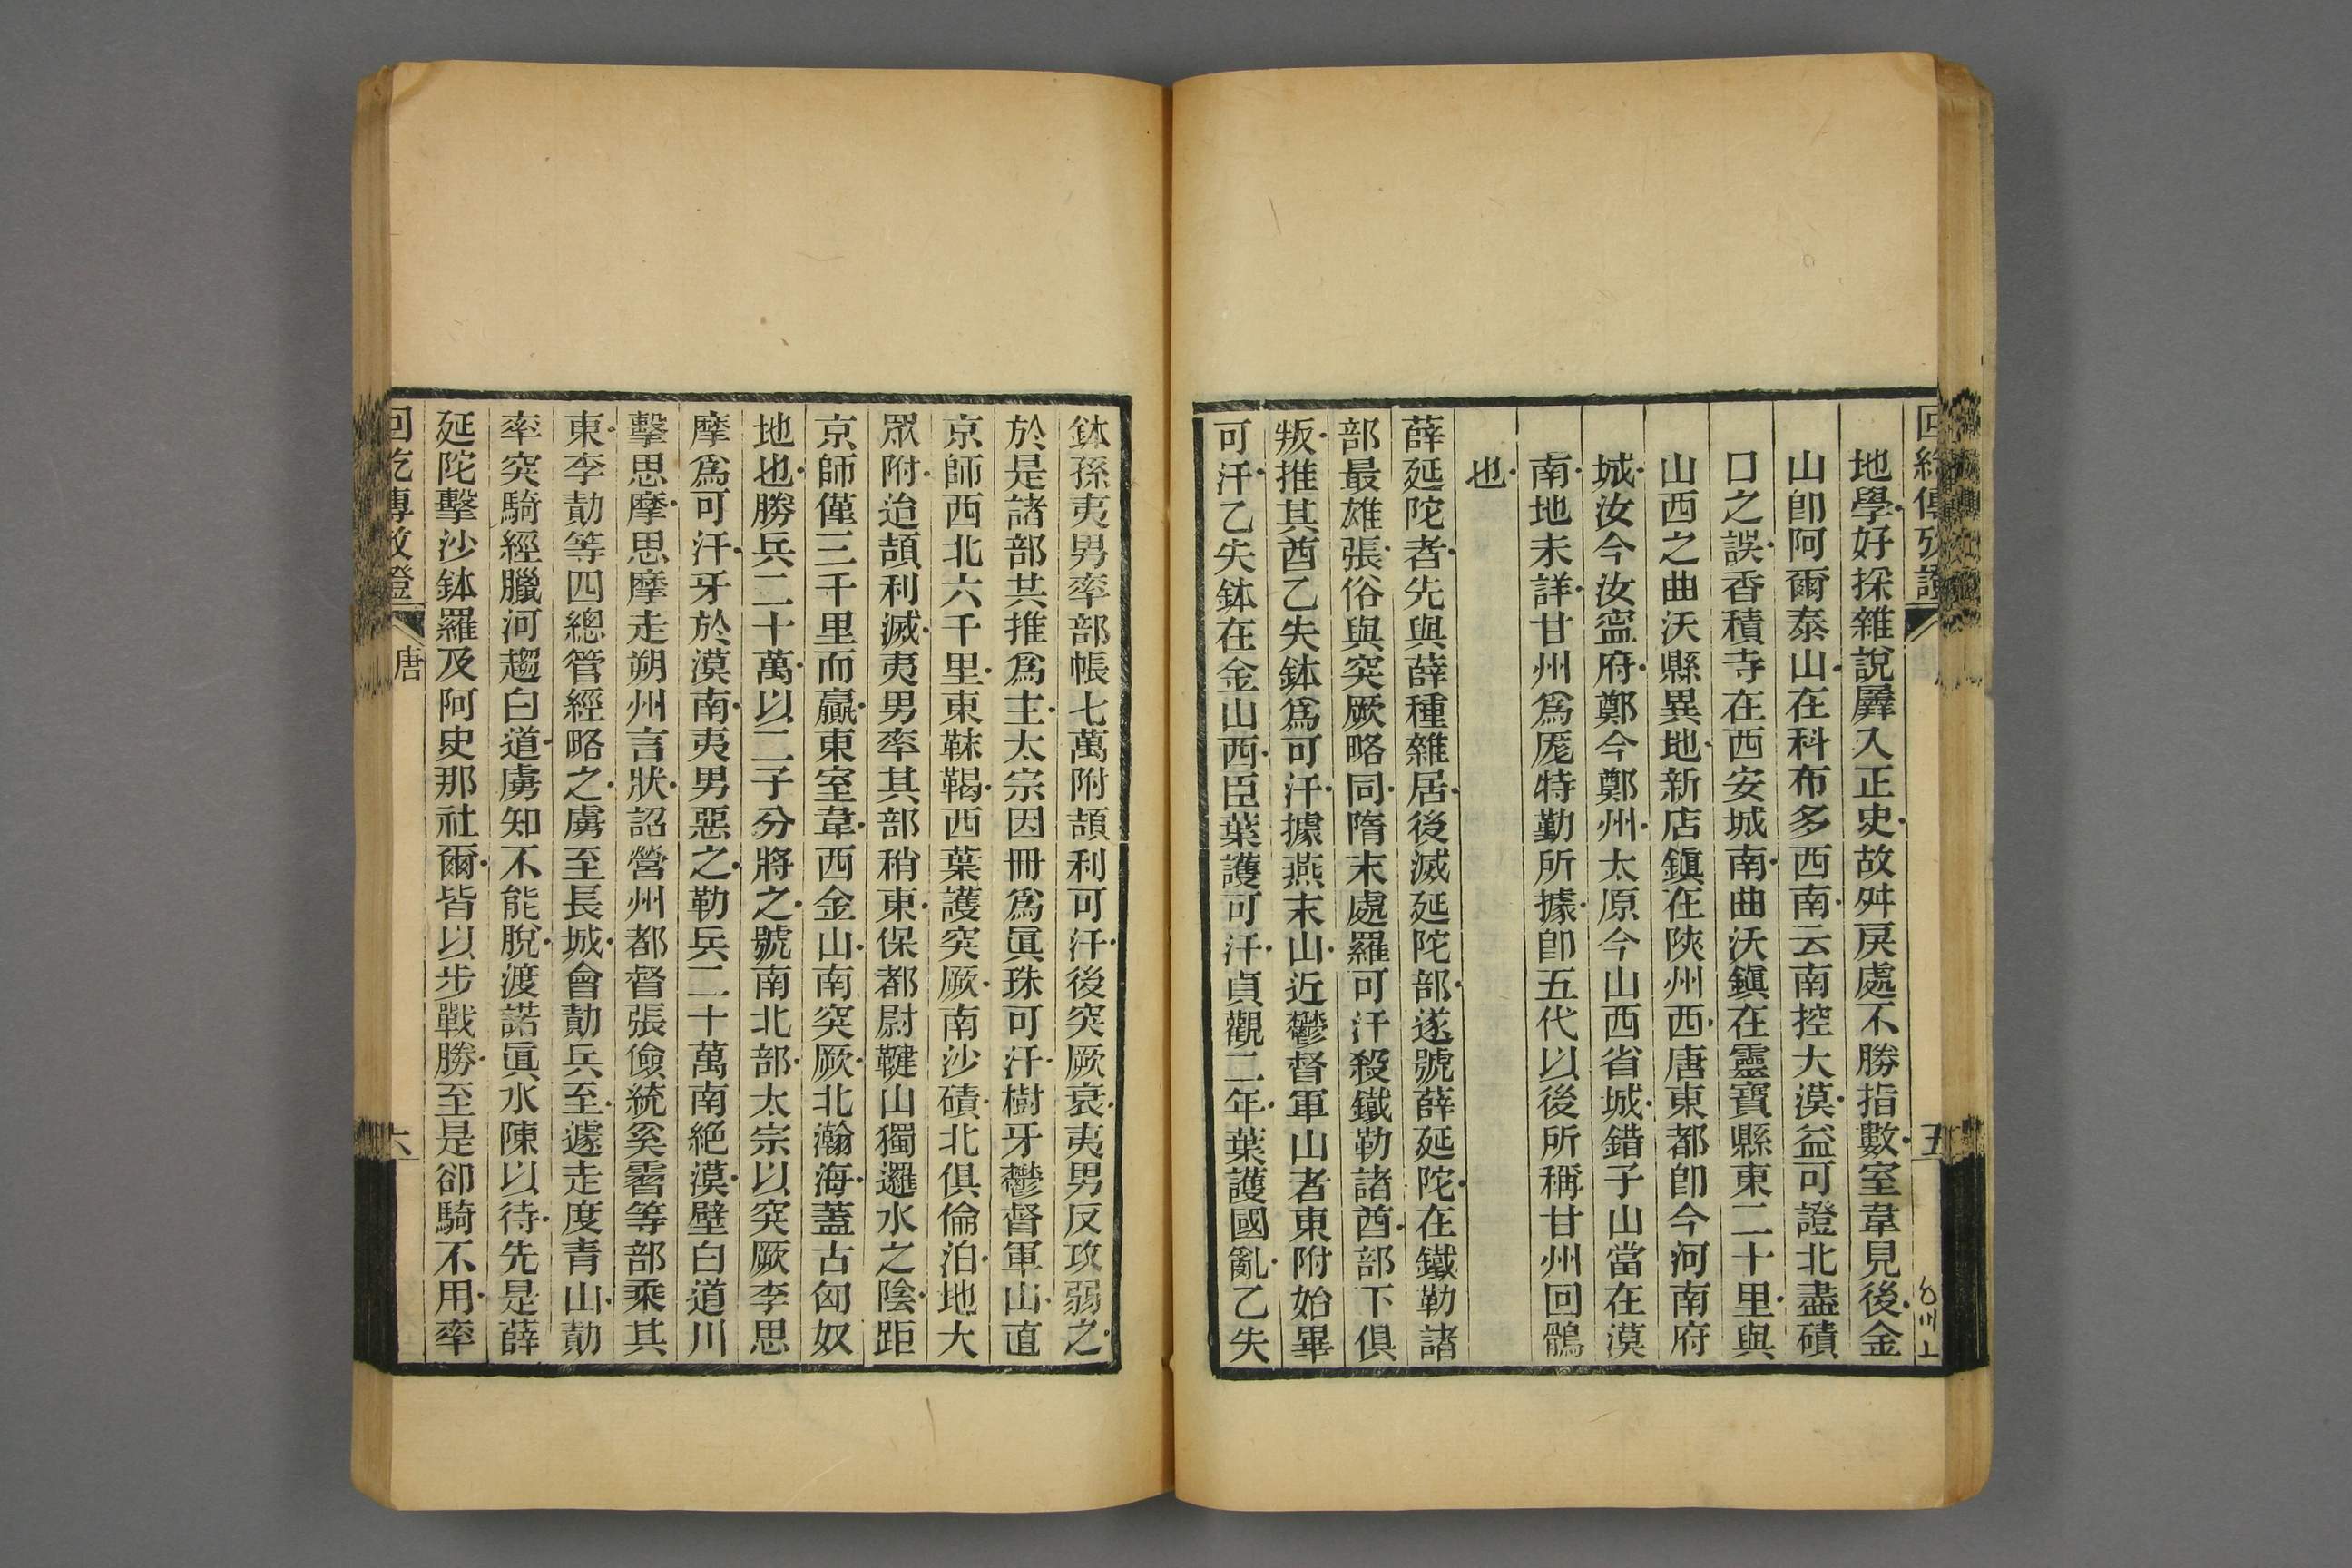 地學好採雜說羼入正史故舛戾處不勝指數室韋見後金
山卽阿爾泰山在科布多西南云南控大漠益可證北盡磧
口之誤香積寺在西安城南曲沃鎭在靈寶縣東二十里與
山西之曲沃縣異地新店鎭在陜州西唐東都卽今河南府
城汝今汝甯府鄭今鄭州太原今山西省城錯子山當在漠
南地未詳甘州爲厖特勤所據卽五代以後所稱甘州回鶻
也
薛延陀者先與薛種雜居後滅延陀部遂號薛延陀在鐵勒諸
部最雄張俗與突厥略同隋末處羅可汗殺鐵勒諸酋部下俱
叛推其酋乙失鉢爲可汗據燕末山近鬱督軍山者東附始畢
可汗乙失鉢在金山西臣葉護可汗貞觀二年葉護國亂乙失
鉢孫夷男率部帳七萬附頡利可汗後突厥衰夷男反攻弱之
於是諸部共推爲主太宗因冊爲眞珠可汗樹牙鬱督軍山直
京師西北六千里東靺鞨西葉護突厥南沙磧北俱倫泊地大
眾附迨頡利滅夷男率其部稍東保都尉鞬山獨邏水之陰距
京師僅三千里而贏東室韋西金山南突厥北瀚海蓋古匈奴
地也勝兵二十萬以二子分將之號南北部太宗以突厥李思
摩爲可汗牙於漠南夷男惡之勒兵二十萬南絕漠壁白道川
擊思摩思摩走朔州言狀詔營州都督張儉統奚霫等部乘其
東李勣等四總管經略之虜至長城會勣兵至遽走度青山勣
率突騎經臘河趨白道虜知不能脫渡諾眞水陳以待先是薛
延陀擊沙鉢羅及阿史那社爾皆以步戰勝至是卻騎不用率
唐
六